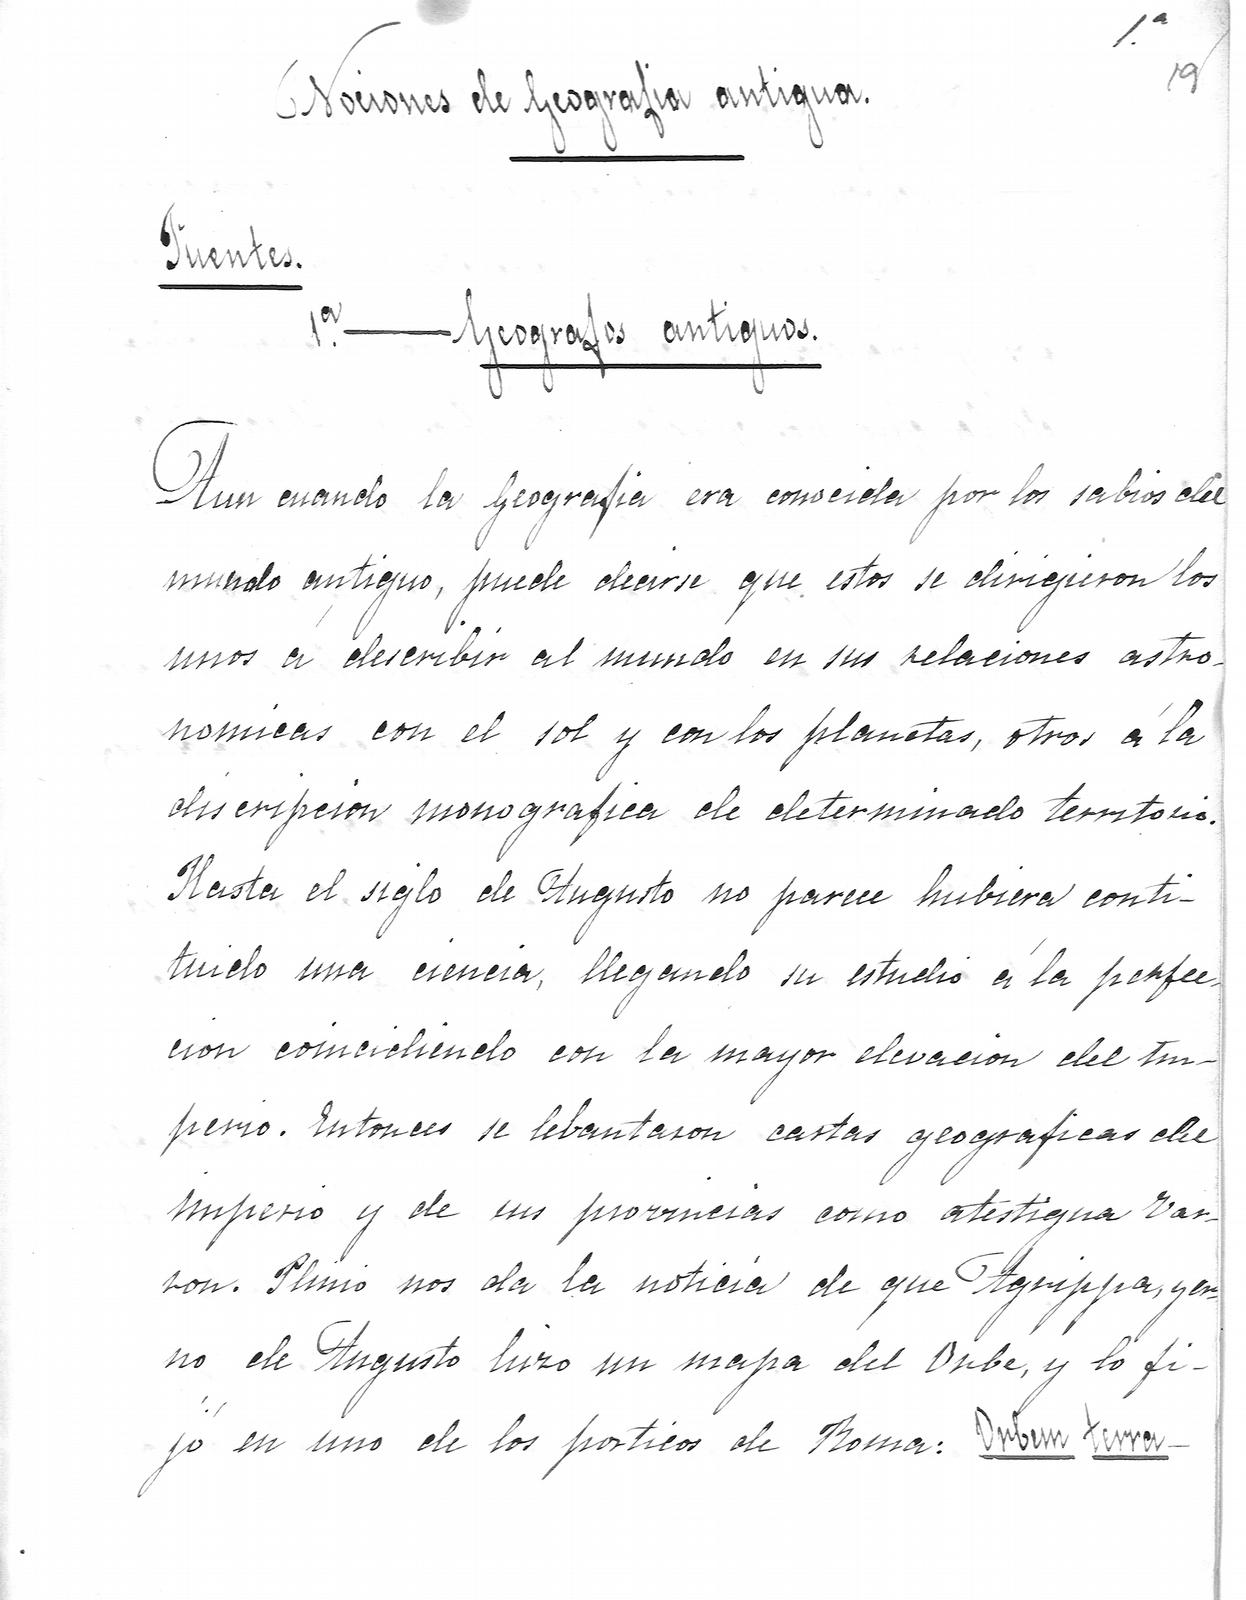 1.ª
19
Nociones de Geografia antigua.
Fuentes.
1.ª — Geografos antiguos.
Aun cuando la Geografia era conocida por los sabios del
mundo antiguo, puede decirse que estos se dirigieron los
unos á describir al mundo en sus relaciones astro-
nomicas con el sol y con los planetas, otros á la
discripción monografica de determinado territorio.
Hasta el siglo de Augusto no parece hubiera conti-
tuido una ciencia, llegando su estudio á la perfec-
cion coincidiendo con la mayor elevación del Im-
perio. Entonces se lebantaron cartas geograficas del
Imperio y de sus provincias como atestigua Var-
ron. Plinio nos da la noticia de que Agrippa, yer-
no de Augusto hizo un mapa del Orbe, y lo fi-
jó en uno de los porticos de Roma: Orbem terra-